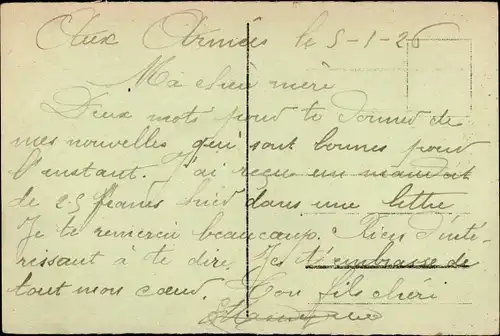 Aux Armées le 5-1-26
Ma chèr mèrè
Deux mots pour te donner de
mes nouvelles qui sont bonnes pour
l'instant. J'ai reçu un mandat
de 25 francs hier dans une lettre
Je te remerci beaucoup. Rien d'inté-
ressant à te dire. Je t'embrasse de
tout mon cœur. Ton fils chéri